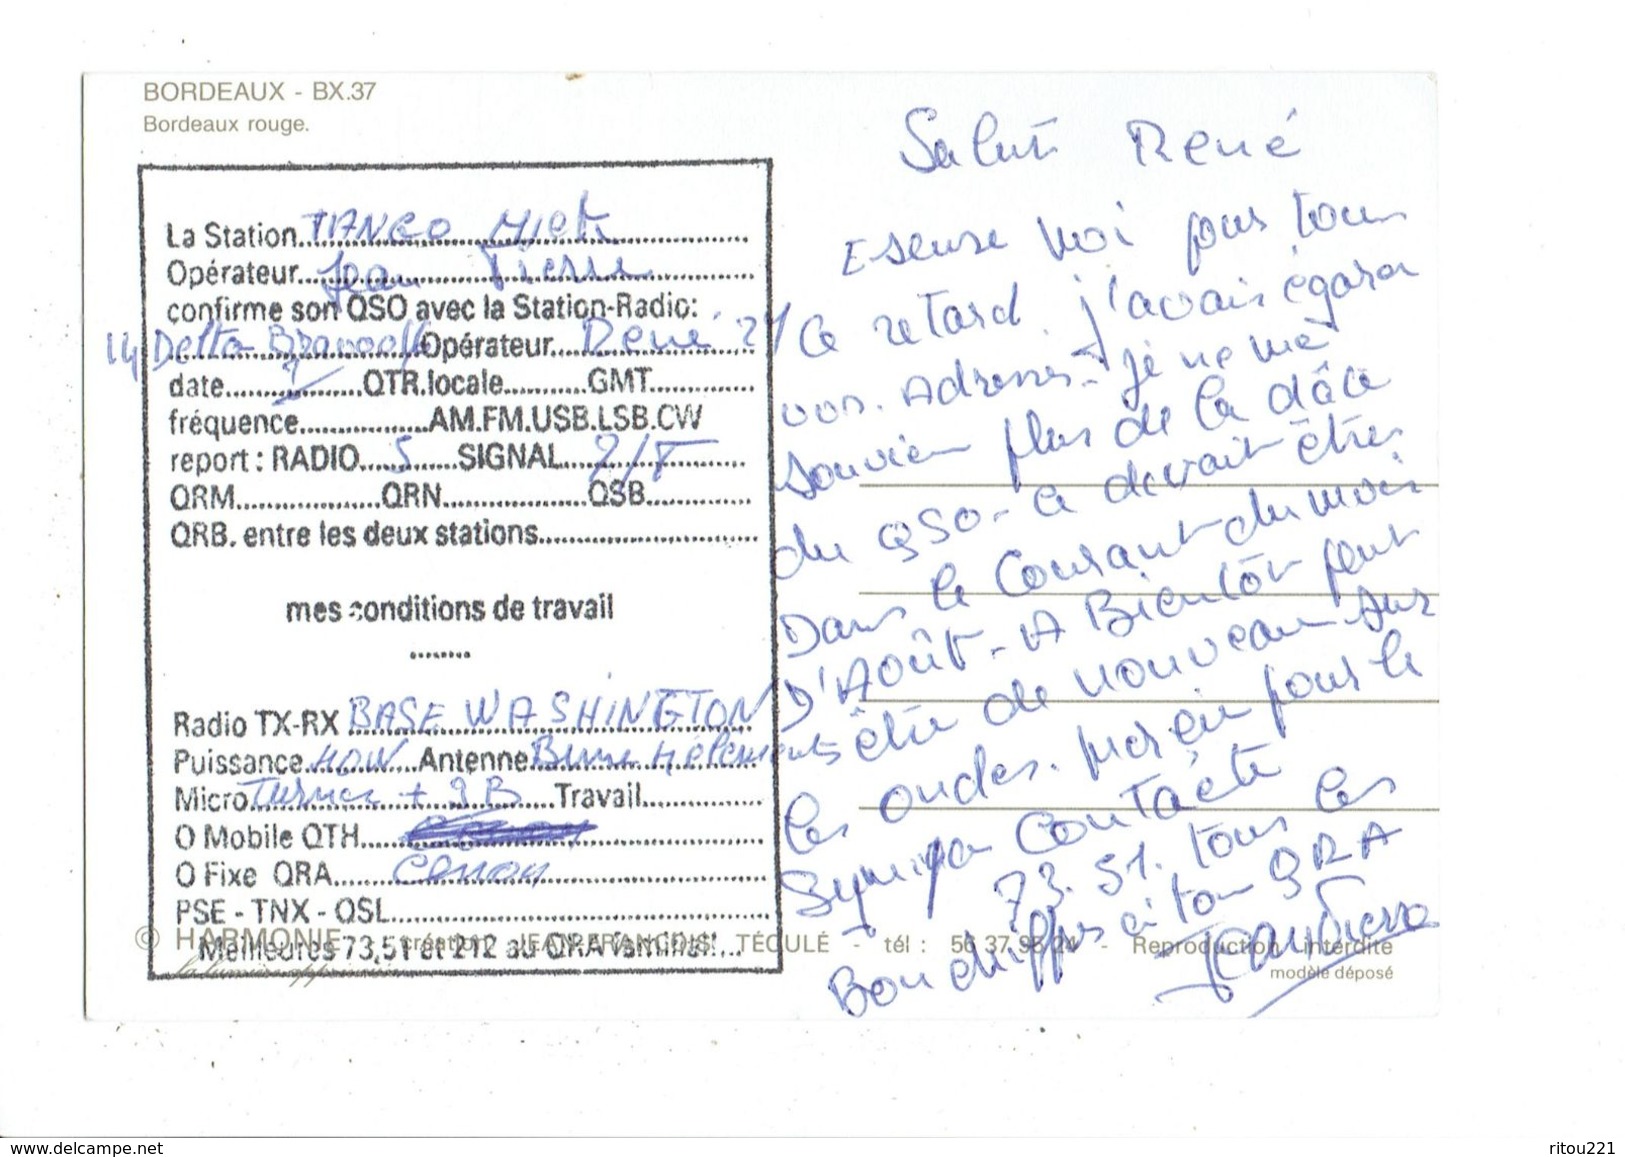 BORDEAUX - BX.37
Bordeaux rouge.
La Station TANGO Mick
Opérateur Jean Pierre
confirme son QSO avec la Station-Radio:
14 Delta Bravo Opérateur René 21
date QTR.locale GMT
fréquence AM.FM.USB.LSB.CW
report : RADIO 5 SIGNAL
QRM QRN QSB
QRB. entre les deux stations
mes conditions de travail
Radio TX-RX BASE WASHINGTON
Puissance 40W Antenne 4 éléments
Micro Turner + 2B Travail
O Mobile QTH
O Fixe QRA Cenon
PSE - TNX - QSL
Meilleures 73,51 et 212 au QRA familial
© HARMONIE - création : JEAN-FRANÇOIS TÉCULÉ - tél : 56 37 98 24 - Reproduction interdite
modèle déposé
Salut René
Escuse moi pour tour
Ce retard. j'avais égarer
vos. Adresses. je ne me
souvien plus de la dâte
du QSO - ce devrait êtres
Dans le Courant du mois
D'Août - A Bientôt peut
être de nouveau sur
les ondes. merçie pour le
Sympa Contacte
73. 51. tous les
Bon chiffres à ton QRA
Jean Pierre
ritou221